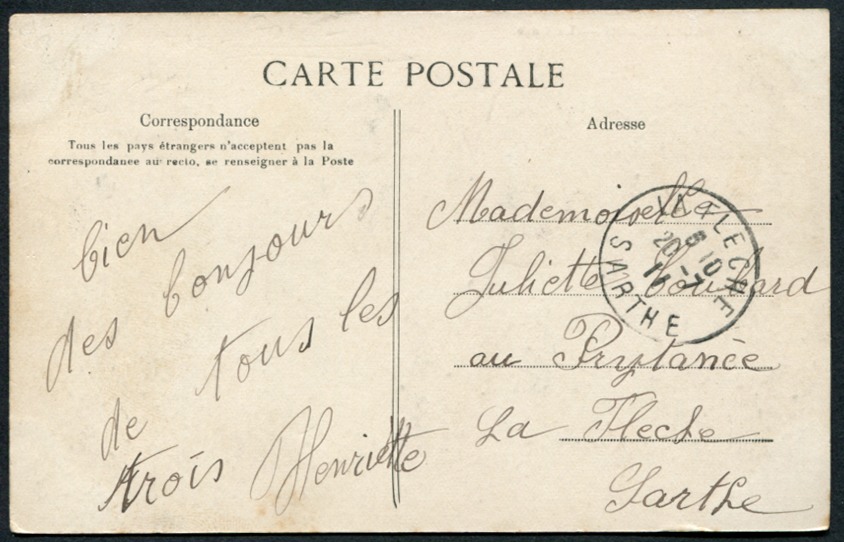 CARTE POSTALE
Correspondance
Tous les pays étrangers n'acceptent pas la
correspondance au recto, se renseigner à la Poste
bien
des bonjours
de tous les
trois Henriette
Adresse
Mademoiselle
Juliette
au Prytanée
La Fleche
Sarthe
LA FLECHE
SARTHE